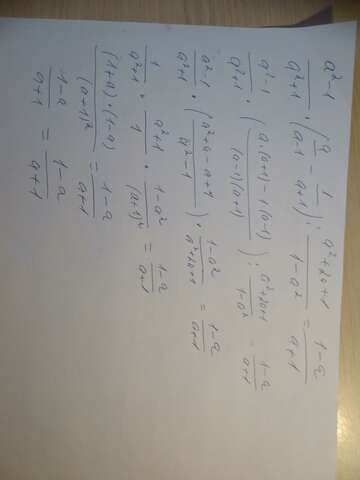 a²-1/a²+1 · (a/a-1 - 1/a+1) : a²+2a+1/1-a² = 1-a/a+1
a²-1/a²+1 · (a·(a+1)-1(a-1)/(a-1)(a+1)) : a²+2a+1/1-a² = 1-a/a+1
a²-1/a²+1 · (a²+a-a+1/a²-1) · 1-a²/a²+2a+1 = 1-a/a+1
1/a²+1 · a²+1/1 · 1-a²/(a+1)² = 1-a/a+1
(1+a)·(1-a)/(a+1)² = 1-a/a+1
1-a/a+1 = 1-a/a+1